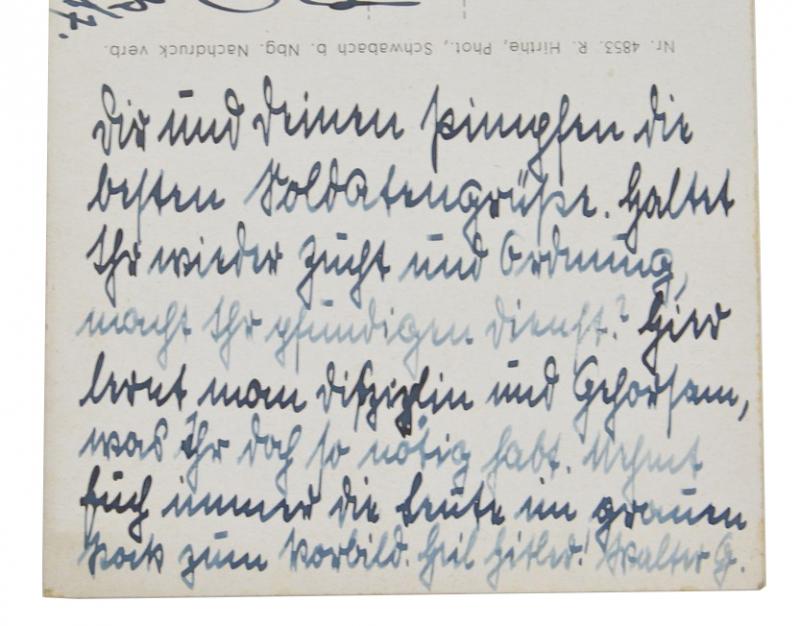 Nr. 4853. R. Hirthe, Phot., Schwabach b. Nbg. Nachdruck verb.
Dir und Deinen Pimpfen die
besten Soldatengrüße. Haltet
Ihr wieder Zucht und Ordnung,
macht Ihr pfundigen Dienst? Hier
lernt man Disziplin und Gehorsam,
was Ihr doch so nötig habt. Nehmt
Euch immer die Leute im grauen
Rock zum Vorbild. Heil Hitler! Walter G.